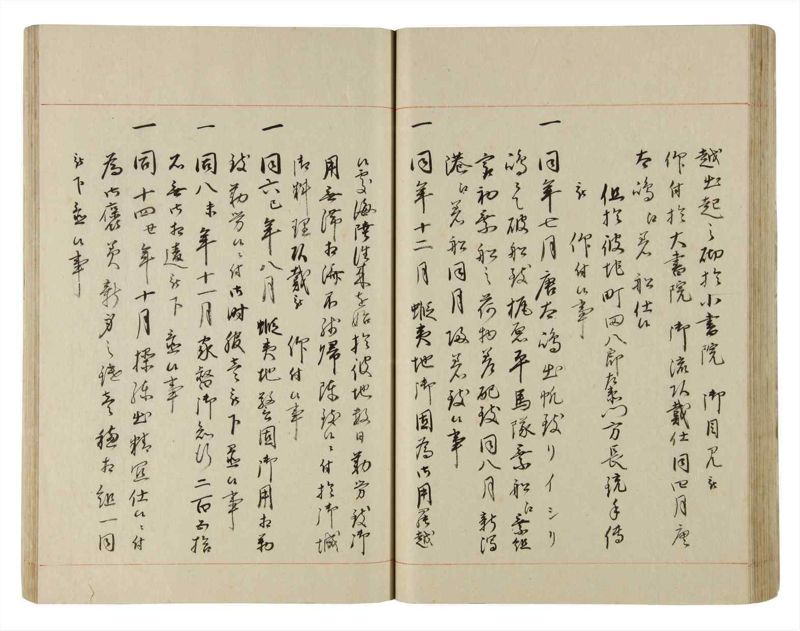 越出起之砌於小書院 御目見被
仰付於大書院 御流頂戴仕同四月唐
太嶋江着船仕候
但於彼地町田八郎左衛門方長銃手傳
被 仰付候事
一 同年七月唐太嶋出帆致リイシリ
嶋ニて破船致梶原平馬隊乗船江乗組
最初乗船之荷物等配致同八月新潟
港江着船同月帰着致候事
一 同年十二月蝦夷地御固為御用罷越
候処海陸往来を始於彼地数日勤労致御
用無滞相済帰陣致候ニ付於御城
御料理頂戴被 仰付候事
一 同六巳年八月蝦夷地警固御用相勤
致勤労候ニ付御時服壱被下置候事
一 同八未年十一月家督御知行二百五拾
石無御相違被下置候事
一 同十四丑年十月操練出精宜仕候ニ付
為御褒美新身之鎗壱穂相組一同
被下置候事